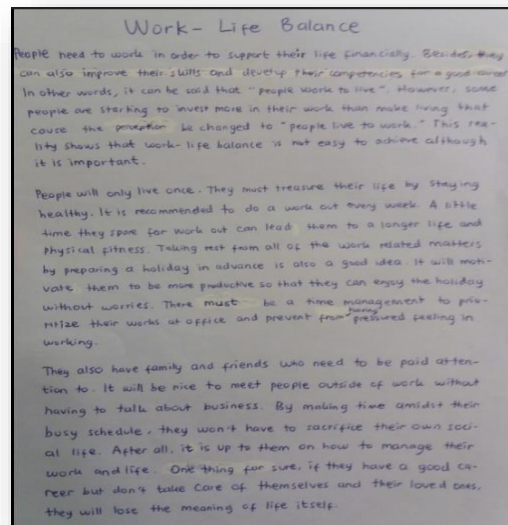 Work - Life Balance
People need to work in order to support their life financially. Besides, they
can also improve their skills and develop their competencies for a good career
In other words, it can be said that "people work to live". However, some
people are starting to invest more in their work than make living that
cause the perception be changed to "people live to work." This rea-
lity shows that work-life balance is not easy to achieve although
it is important.
People will only live once. They must treasure their life by staying
healthy. It is recommended to do a work out every week. A little
time they spare for work out can lead them to a longer life and
physical fitness. Taking rest from all of the work related matters
by preparing a holiday in advance is also a good idea. It will moti-
vate them to be more productive so that they can enjoy the holiday
without worries. There must be a time management to prio-
ritize their works at office and prevent from having pressured feeling in
working.
They also have family and friends who need to be paid atten-
tion to. It will be nice to meet people outside of work without
having to talk about business. By making time amidst their
busy schedule, they won't have to sacrifice their own soci-
al life. After all, it is up to them on how to manage their
work and life. One thing for sure, if they have a good ca-
reer but don't take care of themselves and their loved ones,
they will lose the meaning of life itself.